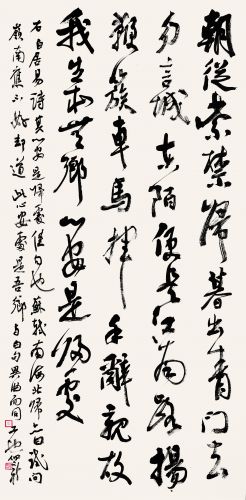 朝從紫禁歸暮出青門去
勿言城東陌便是江南路揚
鞭簇車馬揮手辭親故
我生本無鄉心安是歸處
右白居易詩其心安是歸處佳句也蘇軾南海北歸亦曰試問
嶺南應不好却道此心安處是吾鄉與白句異曲而同